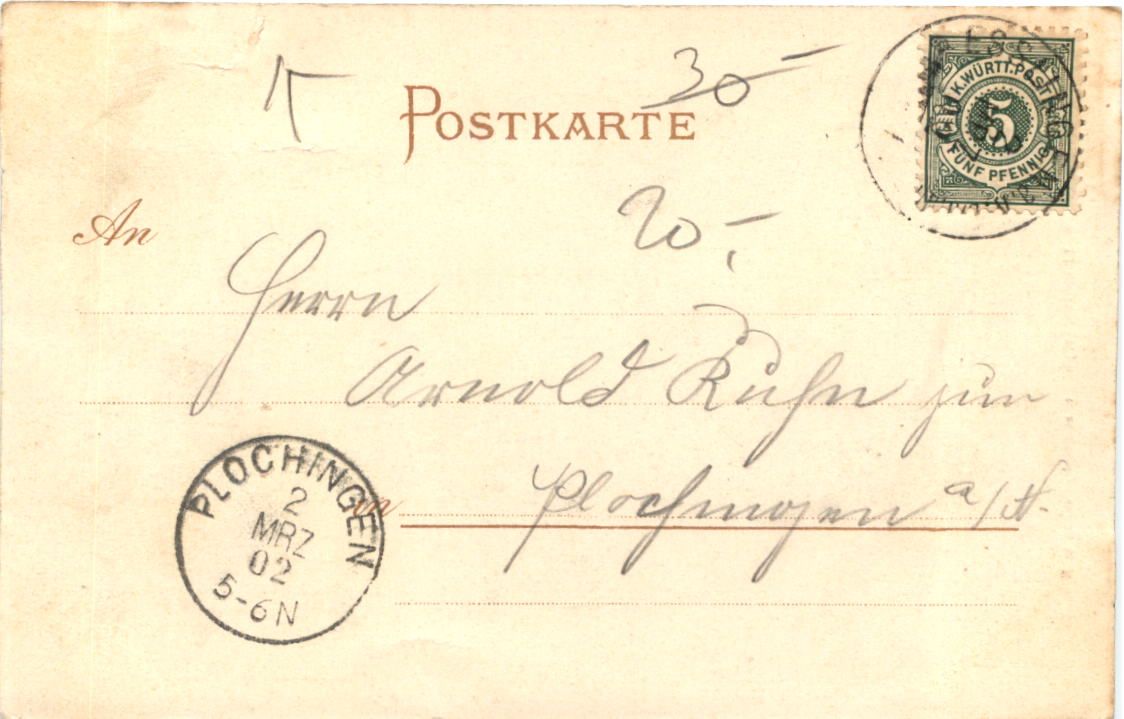 POSTKARTE
30-
K. WÜRTT. POST
5
FÜNF PFENNIG
20,-
An
Herrn
Arnold Kuhn jun
in
Plochingen a/N.
PLOCHINGEN
2
MRZ
02
5-6N